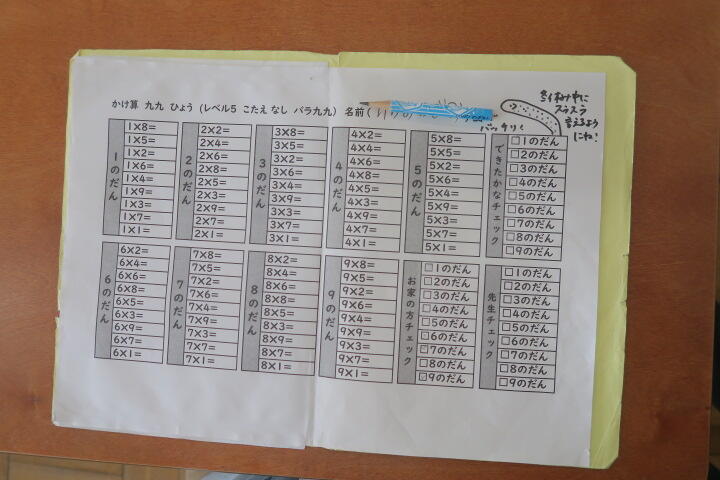 かけ算 九九 ひょう (レベル5 こたえ なし バラ九九) 名前(
冬休み中に
スラスラ
言えるよう
にね!
バッチリ!
1のだん
1×8=
1×5=
1×2=
1×6=
1×4=
1×9=
1×3=
1×7=
1×1=
2のだん
2×2=
2×4=
2×6=
2×8=
2×5=
2×3=
2×9=
2×7=
2×1=
3のだん
3×8=
3×5=
3×2=
3×6=
3×4=
3×9=
3×3=
3×7=
3×1=
4のだん
4×2=
4×4=
4×6=
4×8=
4×5=
4×3=
4×9=
4×7=
4×1=
5のだん
5×8=
5×5=
5×2=
5×6=
5×4=
5×9=
5×3=
5×7=
5×1=
できたかなチェック
□1のだん
□2のだん
□3のだん
□4のだん
□5のだん
□6のだん
□7のだん
□8のだん
□9のだん
6のだん
6×2=
6×4=
6×6=
6×8=
6×5=
6×3=
6×9=
6×7=
6×1=
7のだん
7×8=
7×5=
7×2=
7×6=
7×4=
7×9=
7×3=
7×7=
7×1=
8のだん
8×2=
8×4=
8×6=
8×8=
8×5=
8×3=
8×9=
8×7=
8×1=
9のだん
9×8=
9×5=
9×2=
9×6=
9×4=
9×9=
9×3=
9×7=
9×1=
お家の方チェック
□1のだん
□2のだん
□3のだん
□4のだん
□5のだん
□6のだん
□7のだん
□8のだん
□9のだん
先生チェック
□1のだん
□2のだん
□3のだん
□4のだん
□5のだん
□6のだん
□7のだん
□8のだん
□9のだん